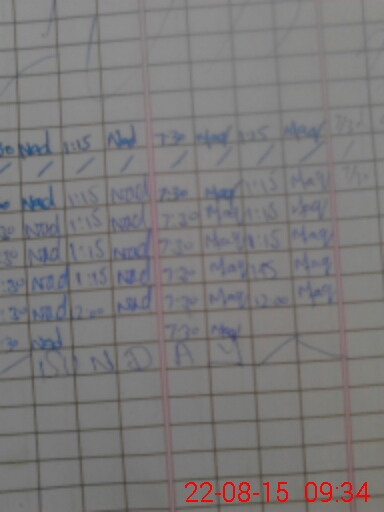 30 Nad 1:15 Nad 7:30 Maq 1:15 Maq 7/30
Nad 1:15 Nad 7:30 Maq 1:15 Maq
30 Nad 1:15 Nad 7:30 Maq 1:15 Maq
:30 Nad 1:15 Nad 7:30 Maq 1:15 Maq
:30 Nad 1:15 Nad 7:30 Maq 1:15 Maq
:30 Nad 2:00 Nad 7:30 Maq 12:00 Maq
:30 Nad 7:30 Maq
S U N D A Y
22-08-15 09:34